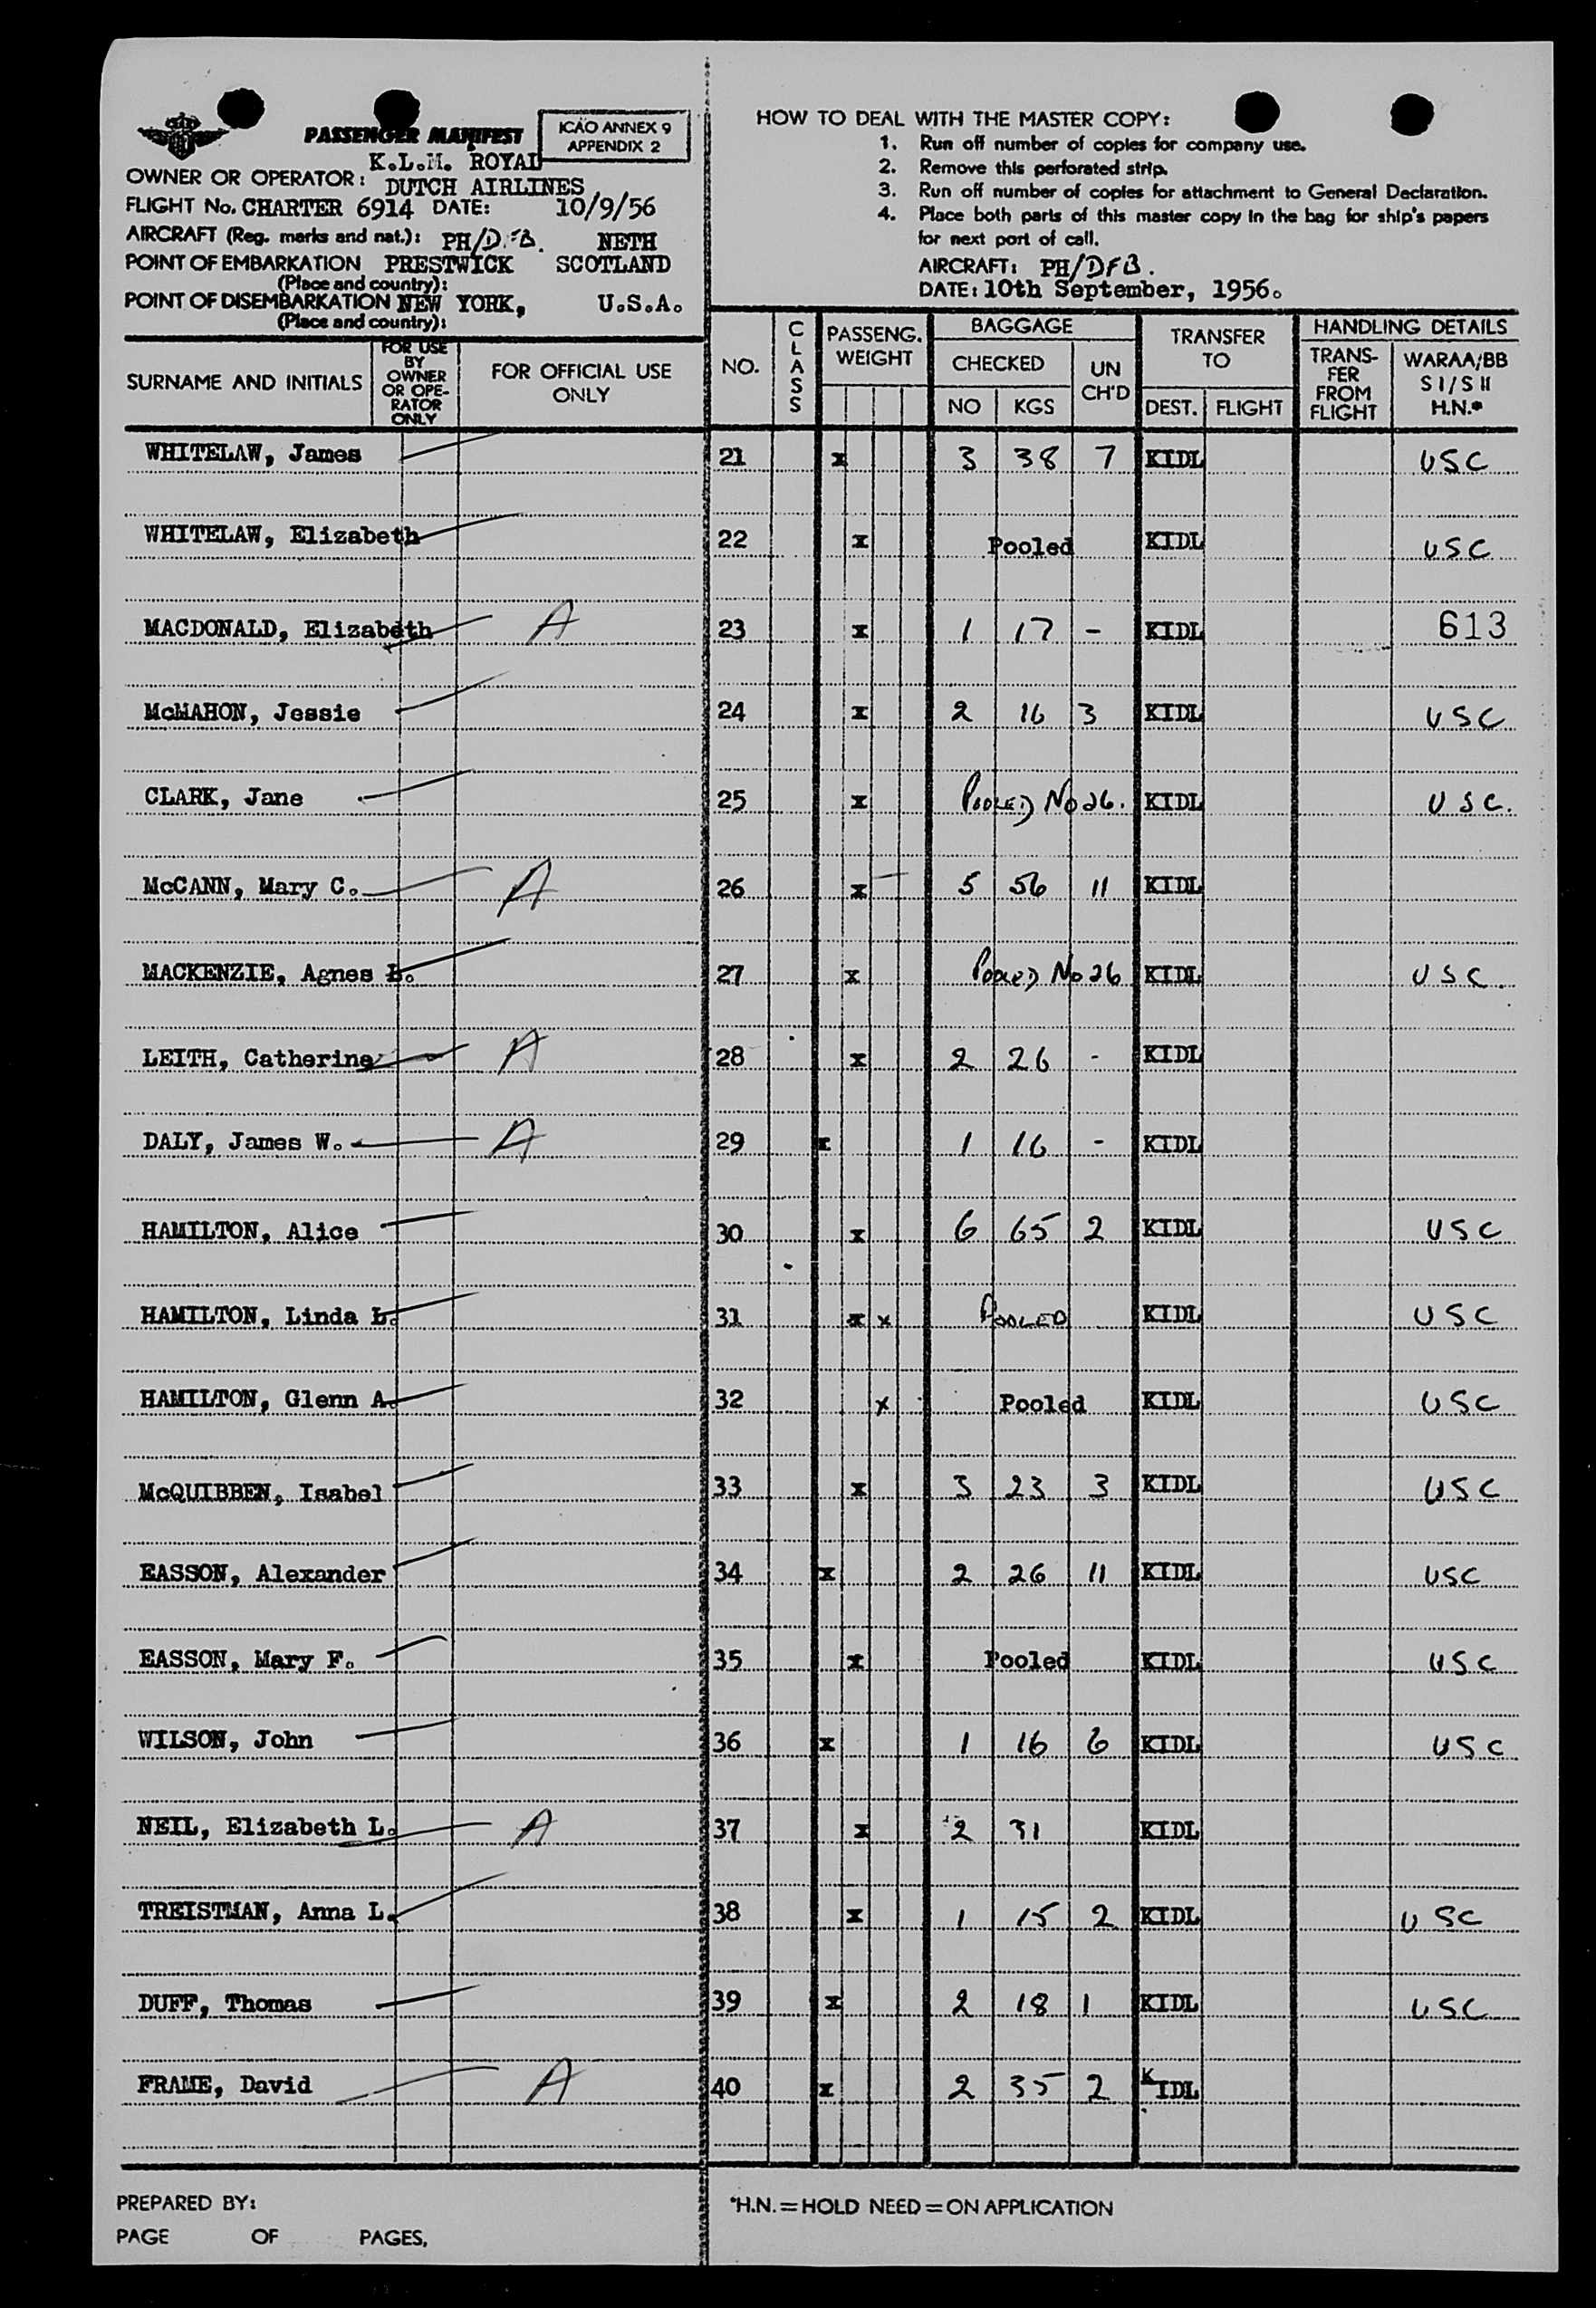 PASSENGER MANIFEST
ICAO ANNEX 9
APPENDIX 2
K.L.M. ROYAL
OWNER OR OPERATOR: DUTCH AIRLINES
FLIGHT No. CHARTER 6914 DATE: 10/9/56
AIRCRAFT (Reg. marks and nat.): PH/DFB. NETH
POINT OF EMBARKATION PRESTWICK SCOTLAND
(Place and country):
POINT OF DISEMBARKATION NEW YORK, U.S.A.
(Place and country):
HOW TO DEAL WITH THE MASTER COPY:
1. Run off number of copies for company use.
2. Remove this perforated strip.
3. Run off number of copies for attachment to General Declaration.
4. Place both parts of this master copy in the bag for ship's papers
for next port of call.
AIRCRAFT: PH/DFB.
DATE: 10th September, 1956.
SURNAME AND INITIALS
FOR USE
BY
OWNER
OR OPE-
RATOR
ONLY
FOR OFFICIAL USE
ONLY
NO.
CLASS
PASSENG.
WEIGHT
BAGGAGE
CHECKED
NO KGS
UN
CH'D
TRANSFER
TO
DEST. FLIGHT
HANDLING DETAILS
TRANS-
FER
FROM
FLIGHT
WARAA/BB
S I / S II
H.N.*
WHITELAW, James 21 x 3 38 7 KIDL USC
WHITELAW, Elizabeth 22 x Pooled KIDL USC
MACDONALD, Elizabeth A 23 x 1 17 - KIDL 613
McMAHON, Jessie 24 x 2 16 3 KIDL USC
CLARK, Jane 25 x POOLED No 26. KIDL USC.
McCANN, Mary C. A 26 x 5 56 11 KIDL
MACKENZIE, Agnes B. 27 x POOLED No 26 KIDL USC.
LEITH, Catherine A 28 x 2 26 - KIDL
DALY, James W. A 29 x 1 16 - KIDL
HAMILTON, Alice 30 x 6 65 2 KIDL USC
HAMILTON, Linda L. 31 x x POOLED KIDL USC
HAMILTON, Glenn A. 32 x Pooled KIDL USC
McQUIBBEN, Isabel 33 x 3 23 3 KIDL USC
EASSON, Alexander 34 x 2 26 11 KIDL USC
EASSON, Mary F. 35 x Pooled KIDL USC
WILSON, John 36 x 1 16 6 KIDL USC
NEIL, Elizabeth L. A 37 x 2 31 KIDL
TREISTMAN, Anna L. 38 x 1 15 2 KIDL USC
DUFF, Thomas 39 x 2 18 1 KIDL USC
FRAME, David A 40 x 2 35 2 KIDL
PREPARED BY:
PAGE OF PAGES,
*H.N. = HOLD NEED = ON APPLICATION